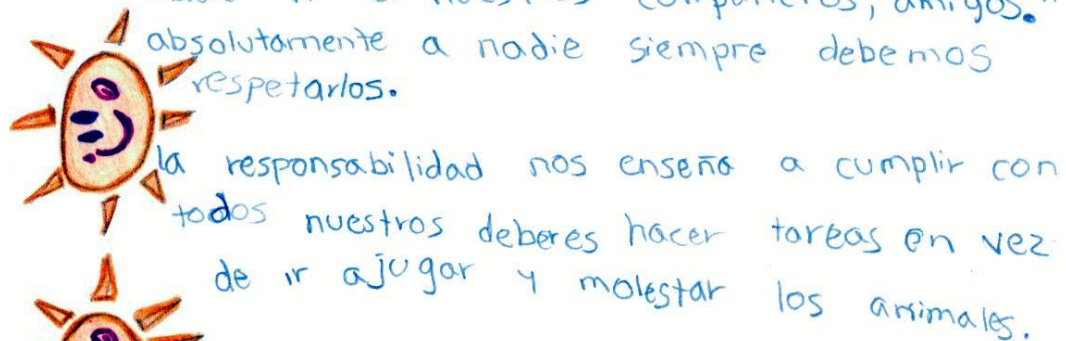 compañeros, amigos.
absolutamente a nadie siempre debemos
respetarlos.
la responsabilidad nos enseña a cumplir con
todos nuestros deberes hacer tareas en vez
de ir ajugar y molestar los animales.